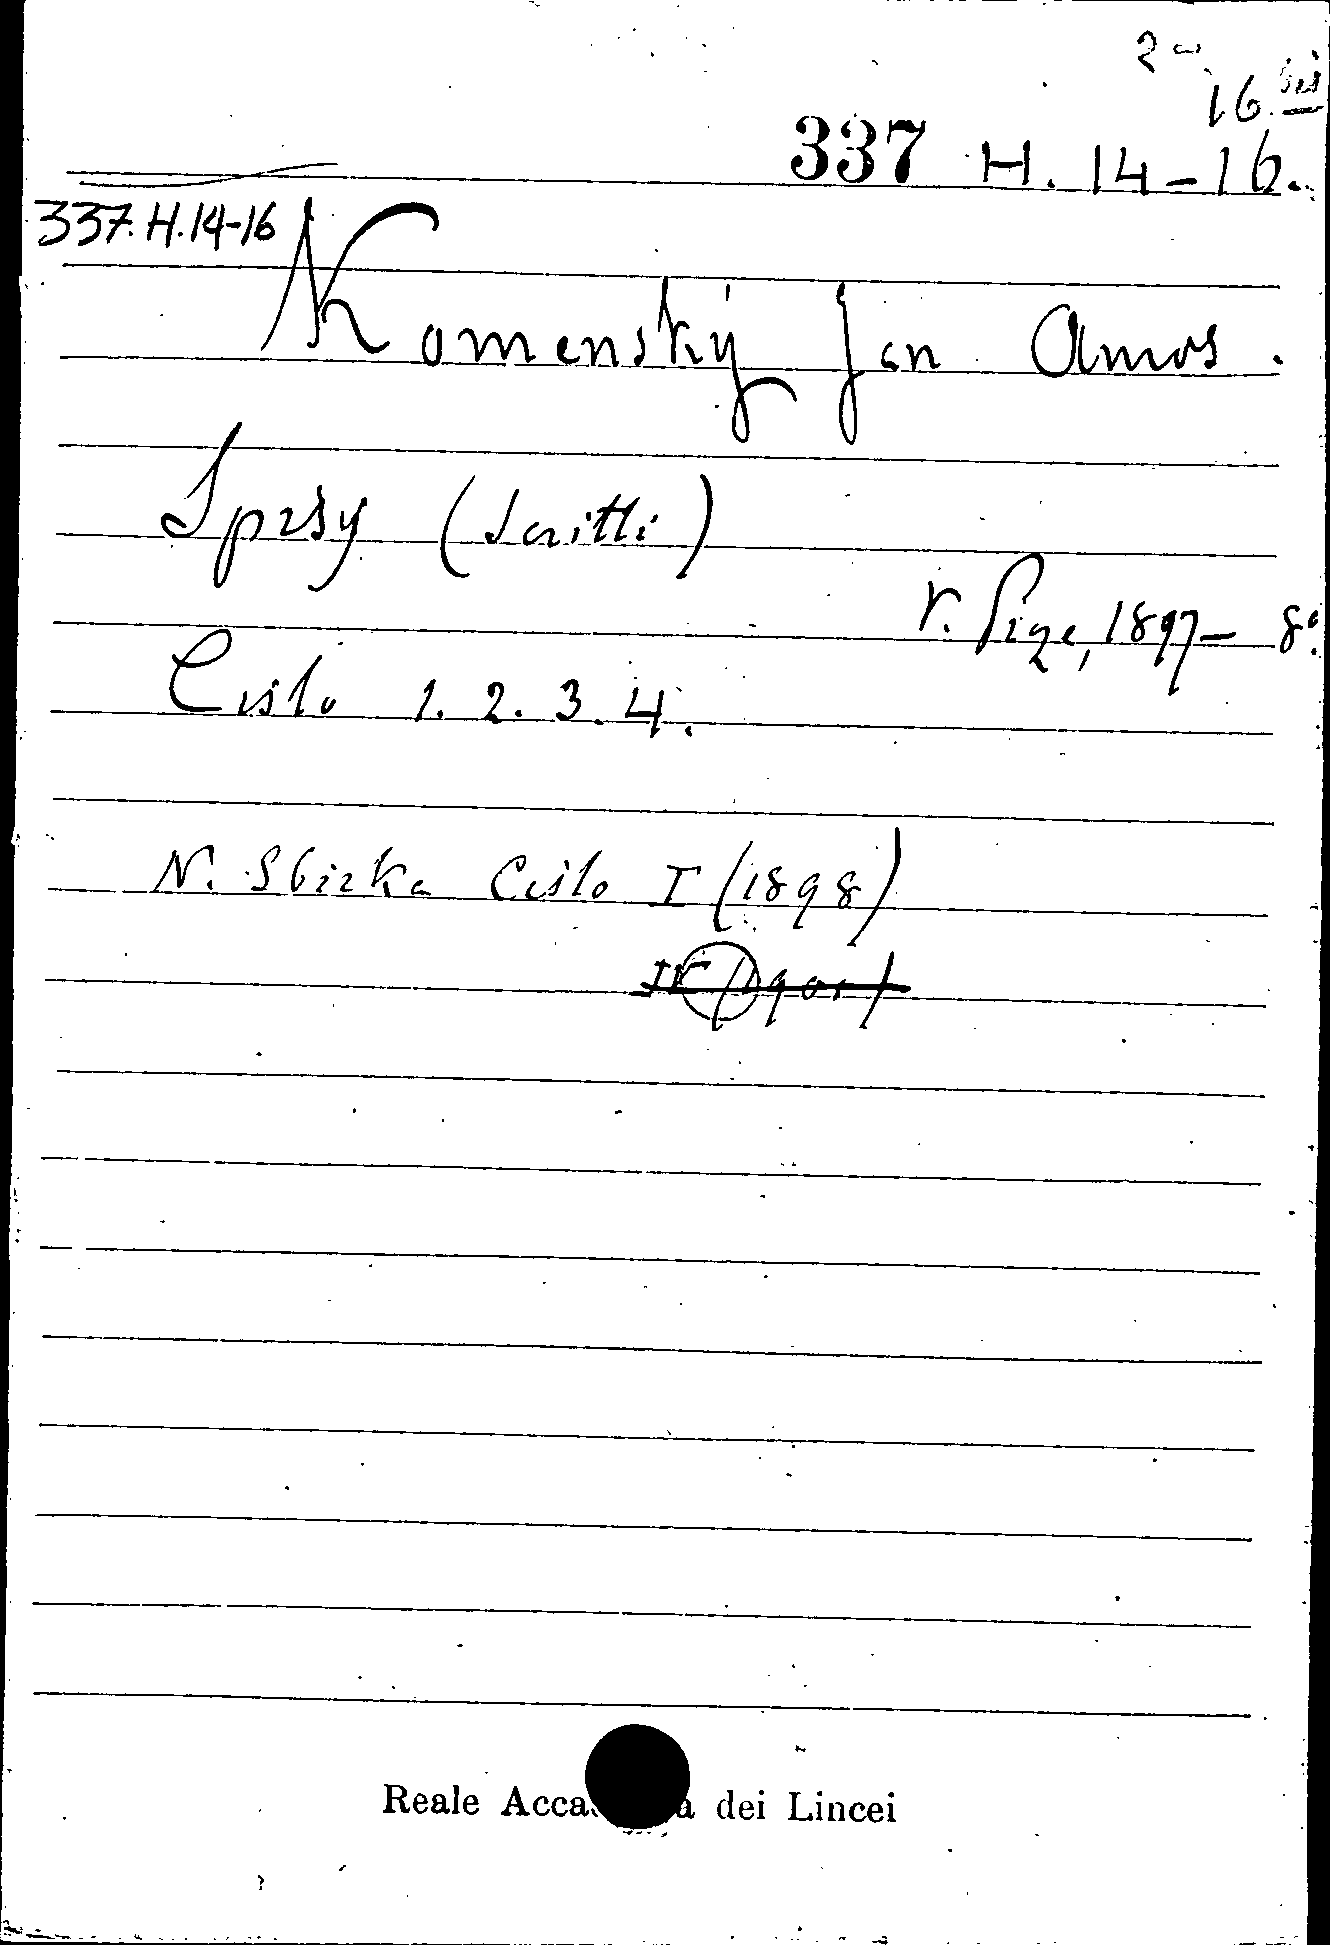 16 bis
337 H. 14-16.
337.H.14-16
Komenský Jan Amos.
Spisy (Scritti)
V. Praze, 1897- 8°
Cislo 1. 2. 3. 4.
N. Sbirka Cislo I (1898)
Reale Acca a dei Lincei